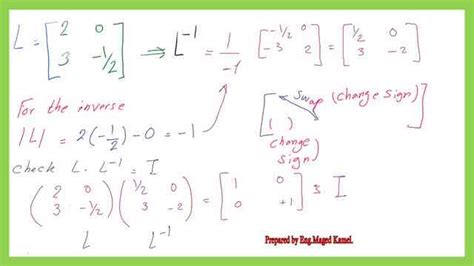 L = [2 0; 3 -1/2] ⇒ L⁻¹ = 1/-1 [-1/2 0; -3 2] = [1/2 0; 3 -2]
For the inverse
|L| = 2(-1/2) - 0 = -1
[ swap (change sign) ]
( )
change
sign)
check L. L⁻¹ = I
(2 0; 3 -1/2) (1/2 0; 3 -2) = [1 0; 0 +1] = I
L L⁻¹
Prepared by Eng.Maged Kamel.